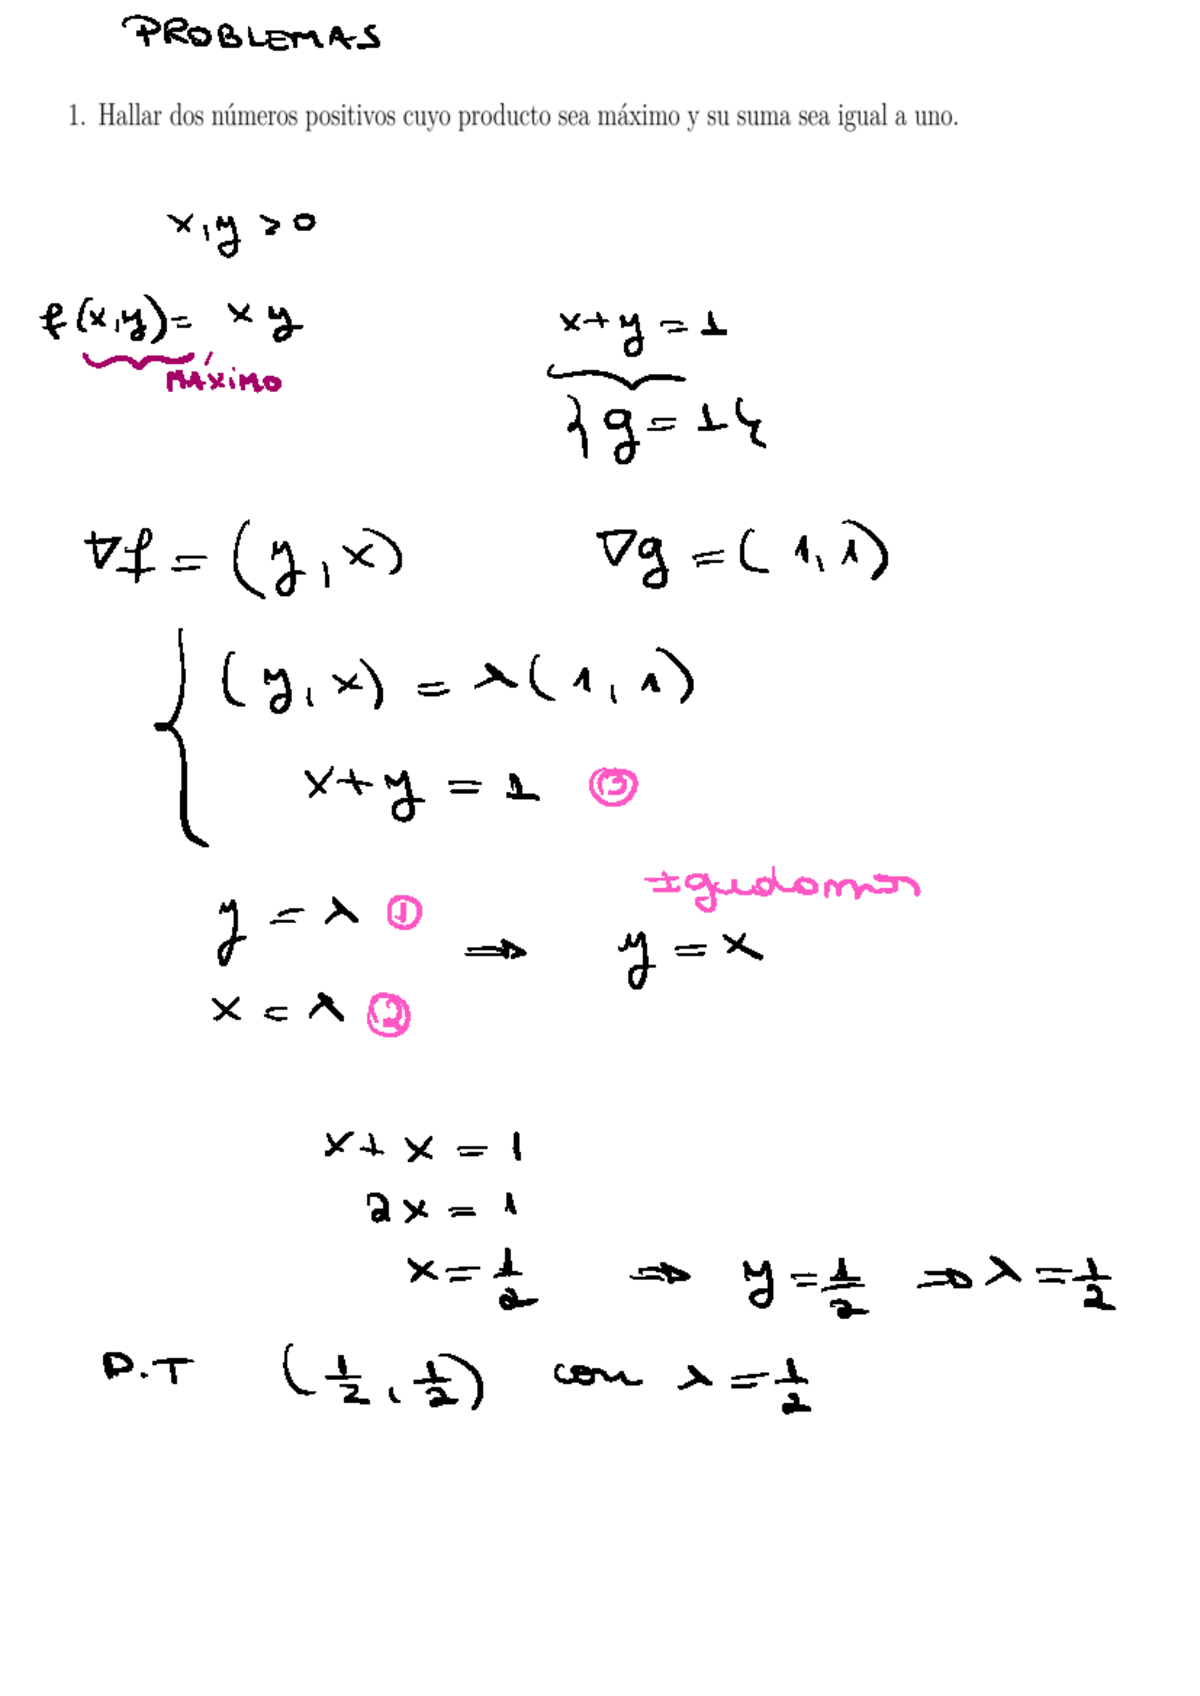 PROBLEMAS
1. Hallar dos números positivos cuyo producto sea máximo y su suma sea igual a uno.
x,y > 0
f(x,y) = x y
x+y = 1
MÁXIMO
{g = 1}
∇f = (y, x)
∇g = (1, 1)
(y, x) = λ(1, 1)
x+y = 1 ③
Igualamos
y = λ ①
⇒ y = x
x = λ ②
x + x = 1
2x = 1
x = 1/2 ⇒ y = 1/2 ⇒ λ = 1/2
P.T (1/2, 1/2) con λ = 1/2